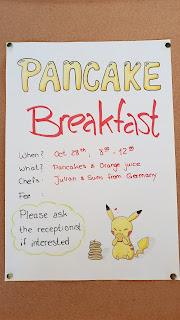 PANCAKE
Breakfast
When? Oct 28th, 8³⁰ - 12⁰⁰
What? Pancakes & Orange juice
Chefs: Julian & Sumi from Germany
Fee :
Please ask
the receptionist
if interested